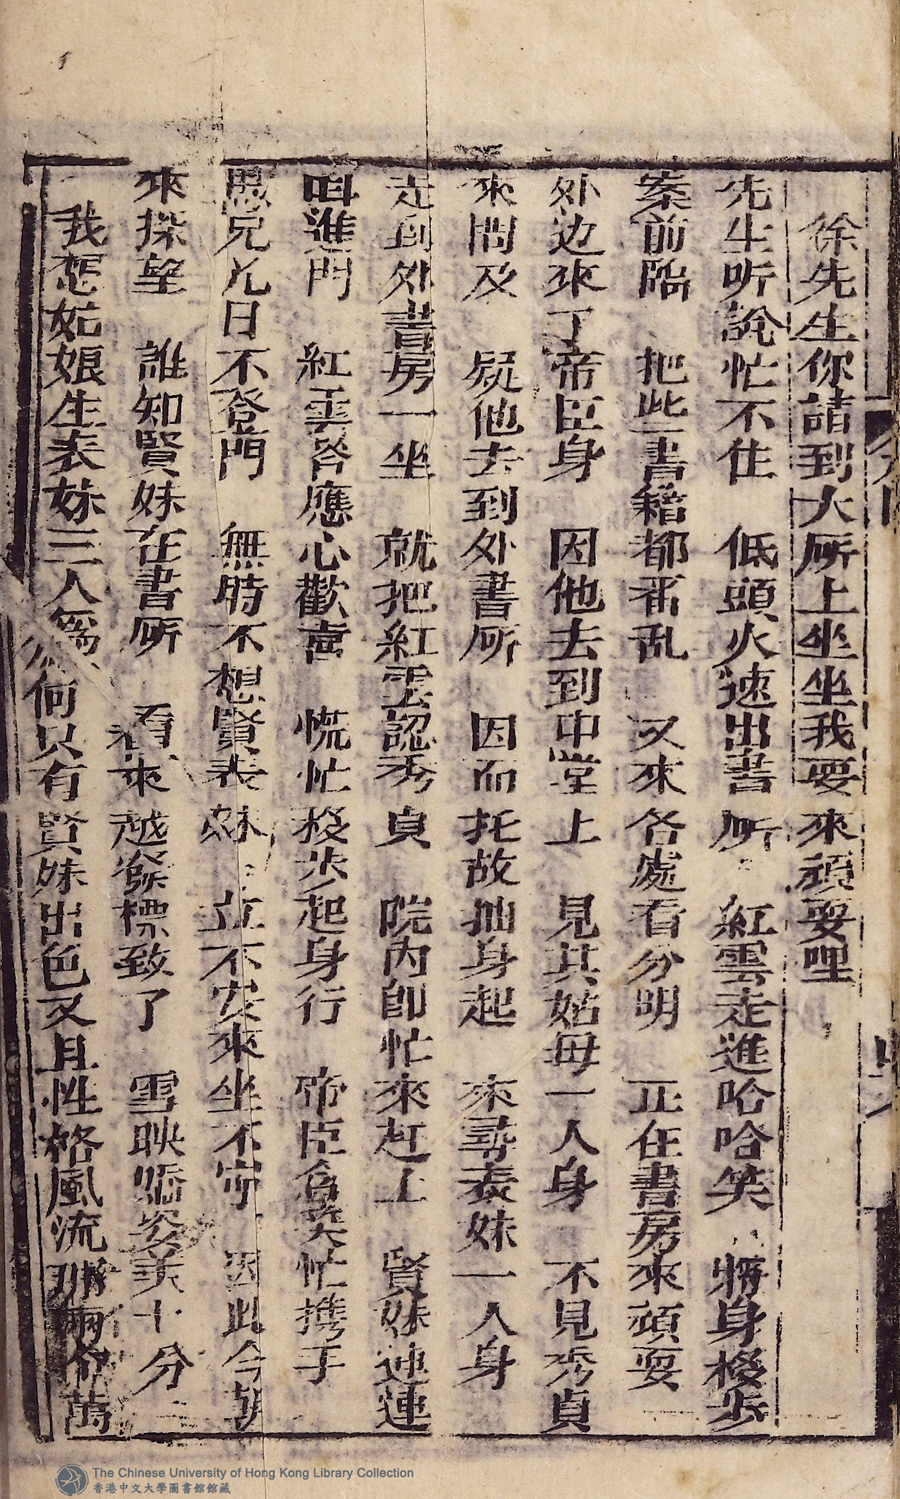 徐先生你請到大所上坐坐我耍來頑耍哩
先生听說忙不住 低頭火速出書所 紅雲走進哈哈笑 將身梭步
案前陷 把些書籍都番乱 又來各處看分明 正在書房來頑耍
外边來了帝臣身 因他去到中堂上 見其姑母一人身 不見秀貞
來問及 疑他去到外書所 因而托故抽身起 來尋表妹一人身
走到外書房一坐 就把紅雲認秀貞 院內即忙來赶上 賢妹連連
呌進門 紅雲答應心歡喜 慌忙移步起身行 帝臣忙携手
愚兄几日不登門 無時不想賢表妹 立不安來坐不寧 因此今朝
來探望 誰知賢妹在書所 看來越發標致了 雪映嬌姿美十分
我想姑娘生表妹三人為何只有賢妹出色又且性格風流 萬
The Chinese University of Hong Kong Library Collection
香港中文大學圖書館館藏